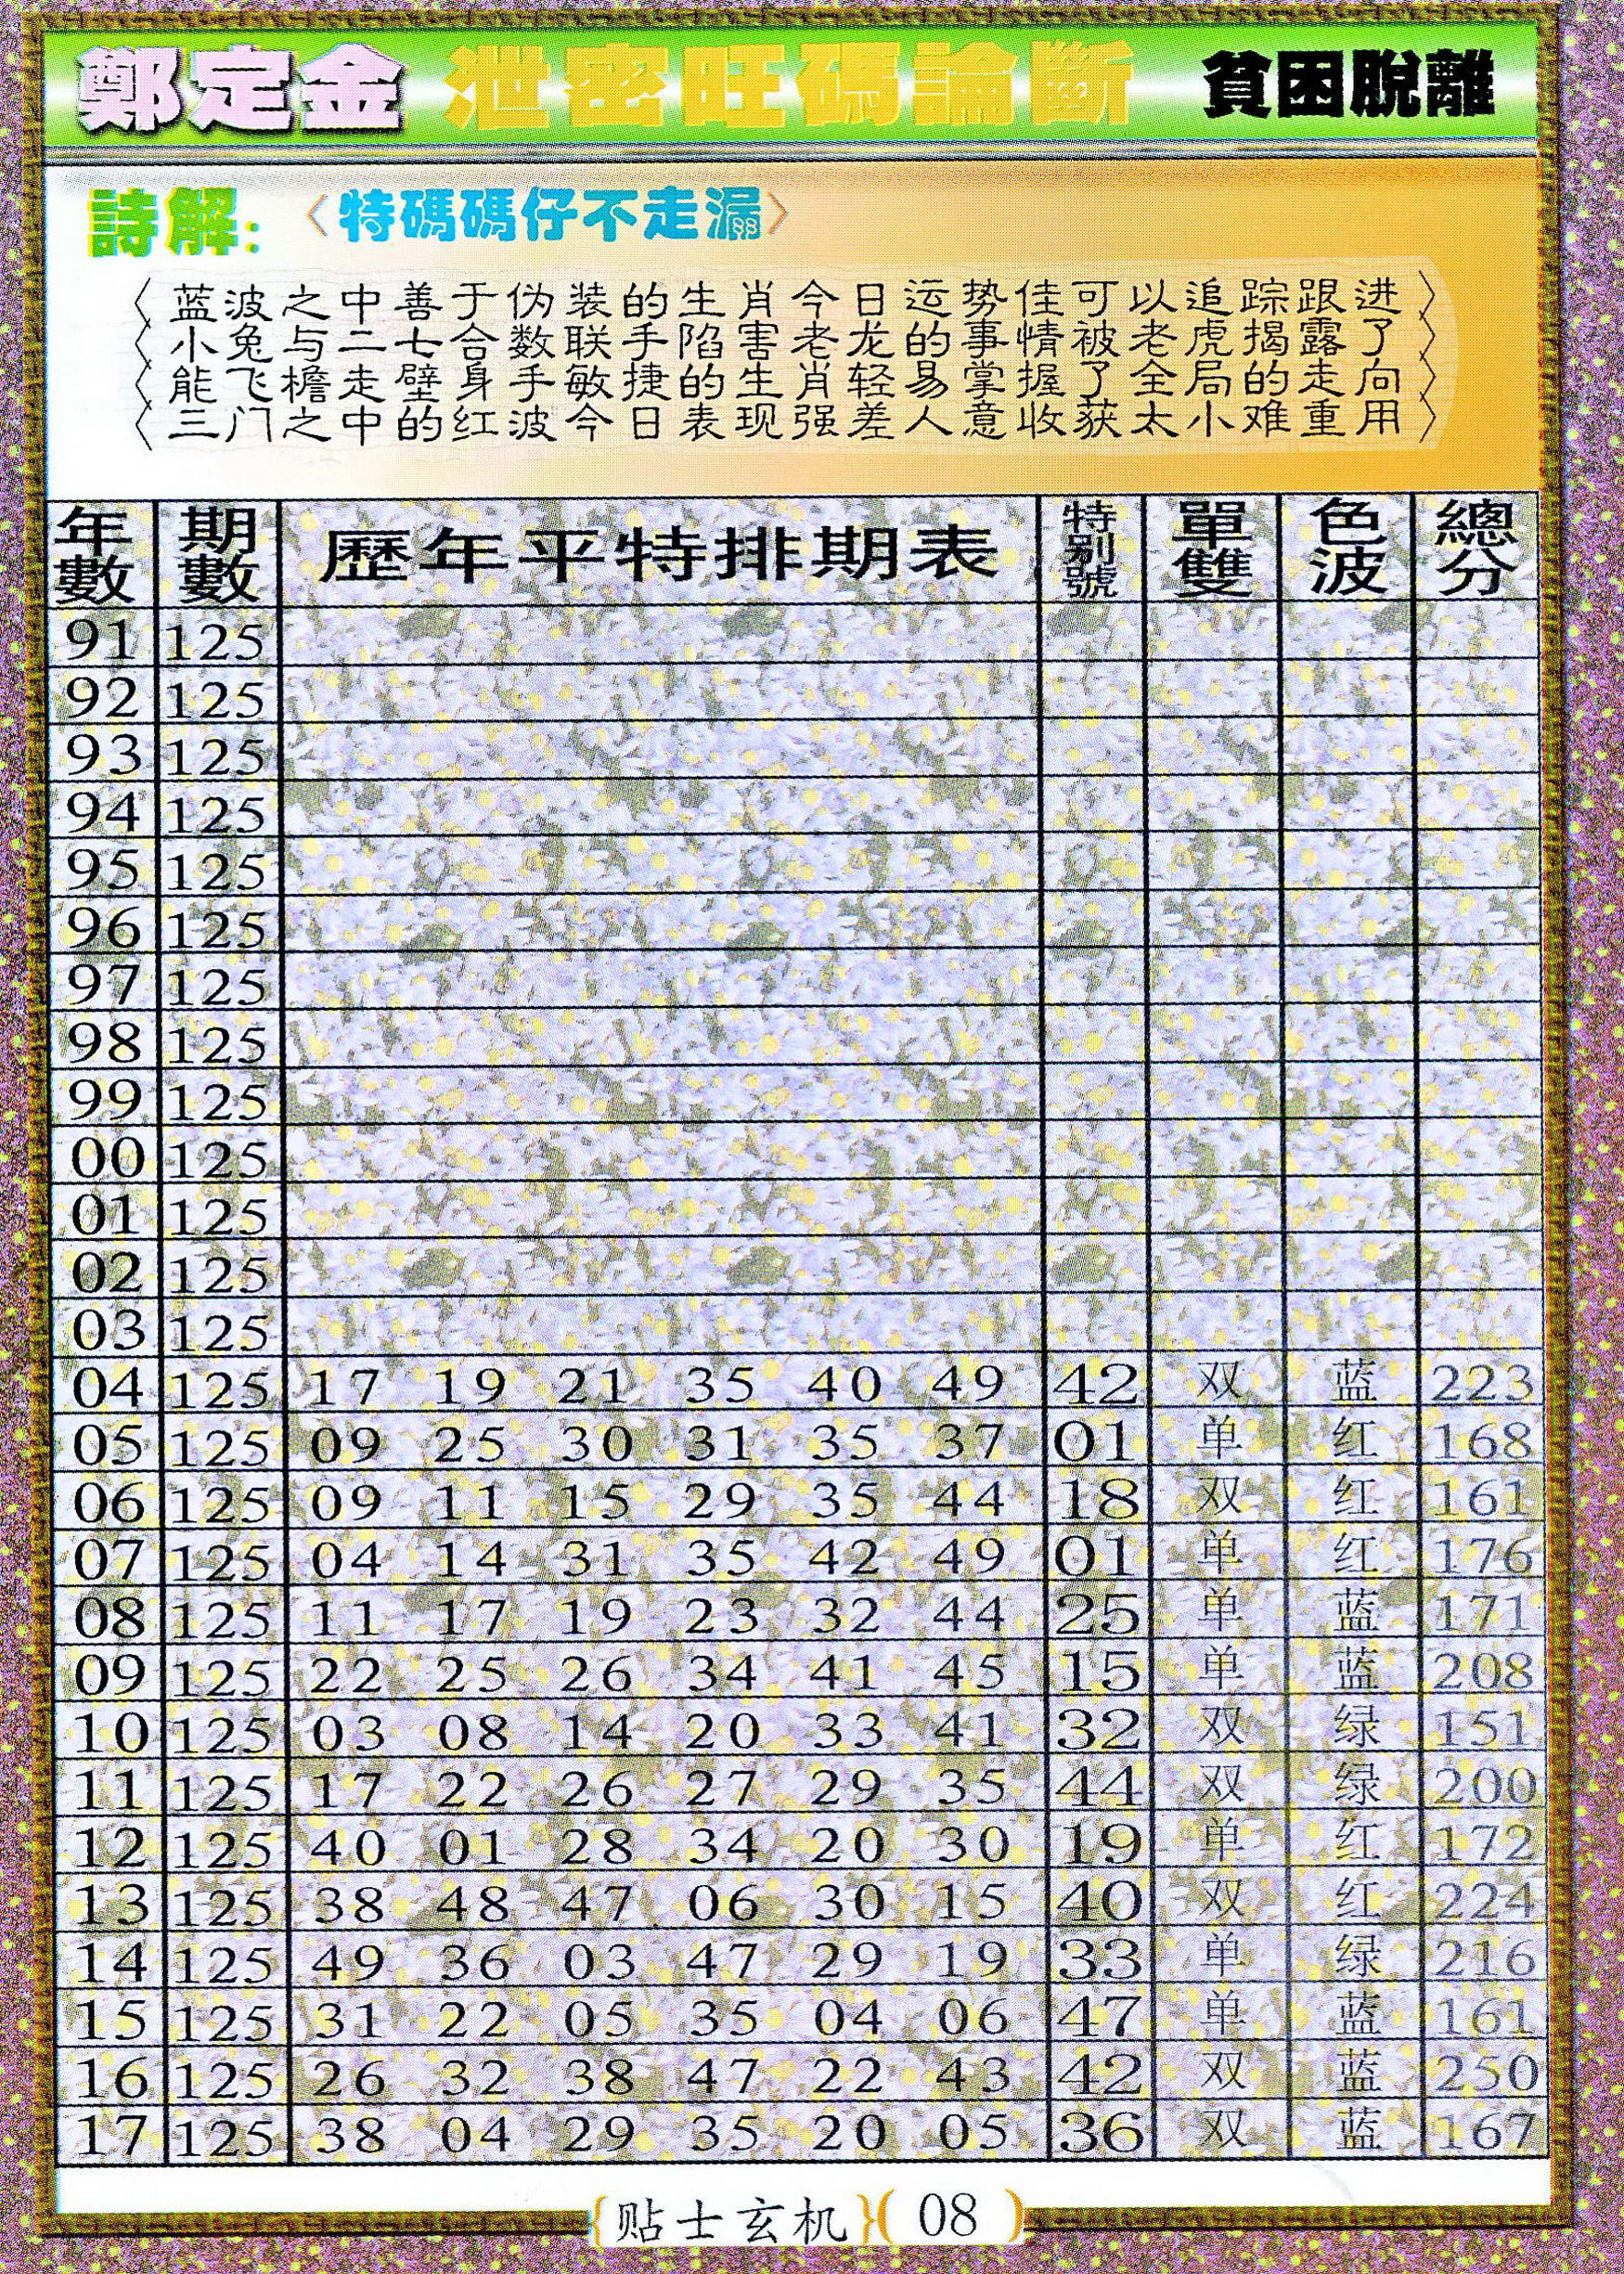 鄭定金 泄密旺碼論斷 貧困脫離
詩解: 〈特碼碼仔不走漏〉
〈蓝波之中善于伪装的生肖今日运势佳可以追踪跟进〉
〈小兔与二七合数联手陷害老龙的事情被老虎揭露了〉
〈能飞檐走壁身手敏捷的生肖轻易掌握了全局的走向〉
〈三门之中的红波今日表现强差人意收获太小难重用〉
年數 期數 歷年平特排期表 特别號 單雙 色波 總分
91 125
92 125
93 125
94 125
95 125
96 125
97 125
98 125
99 125
00 125
01 125
02 125
03 125
04 125 17 19 21 35 40 49 42 双 蓝 223
05 125 09 25 30 31 35 37 01 单 红 168
06 125 09 11 15 29 35 44 18 双 红 161
07 125 04 14 31 35 42 49 01 单 红 176
08 125 11 17 19 23 32 44 25 单 蓝 171
09 125 22 25 26 34 41 45 15 单 蓝 208
10 125 03 08 14 20 33 41 32 双 绿 151
11 125 17 22 26 27 29 35 44 双 绿 200
12 125 40 01 28 34 20 30 19 单 红 172
13 125 38 48 47 06 30 15 40 双 红 224
14 125 49 36 03 47 29 19 33 单 绿 216
15 125 31 22 05 35 04 06 47 单 蓝 161
16 125 26 32 38 47 22 43 42 双 蓝 250
17 125 38 04 29 35 20 05 36 双 蓝 167
{贴士玄机}(08)